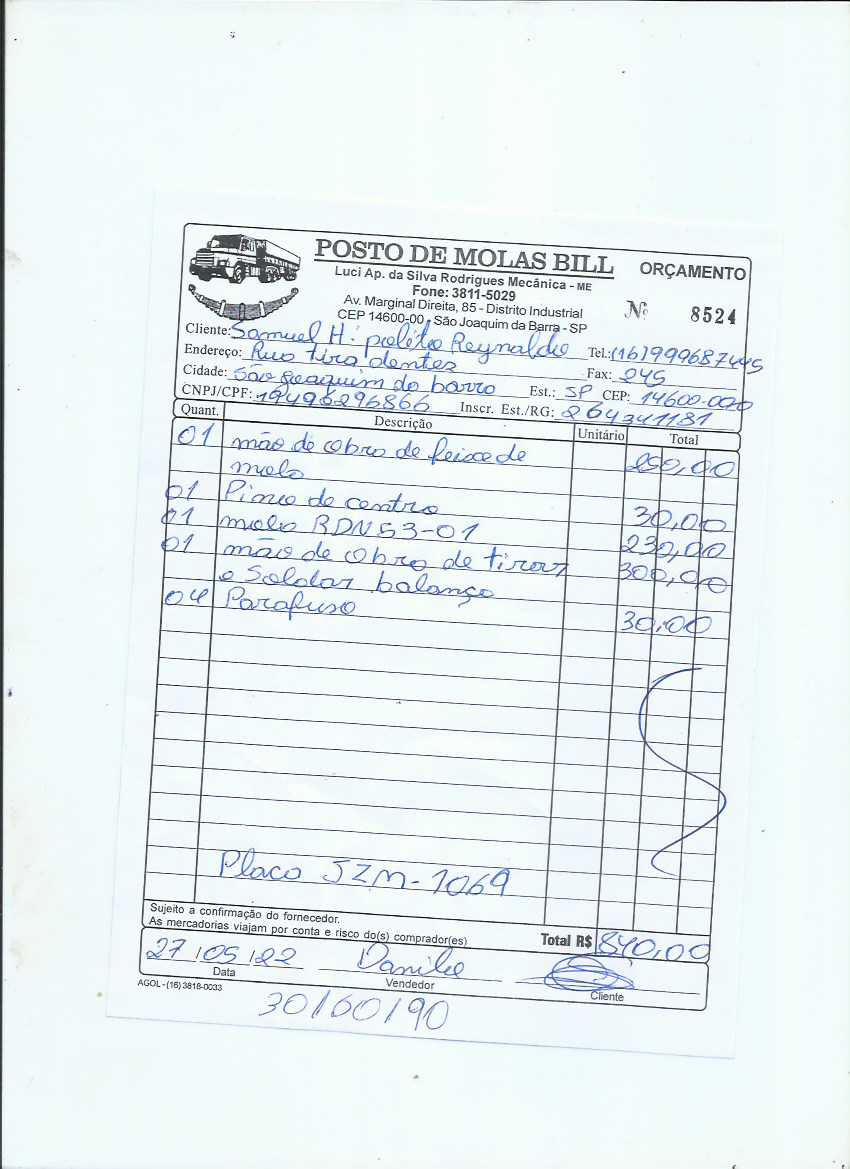 POSTO DE MOLAS BILL
ORÇAMENTO
Luci Ap. da Silva Rodrigues Mecânica - ME
Fone: 3811-5029
Av. Marginal Direita, 85 - Distrito Industrial
CEP 14600-00 - São Joaquim da Barra - SP
Nº 8524
Cliente: Samuel H. polito Reynaldo Tel.: (16)999687445
Endereço: Rua tira dentes Fax: 245
Cidade: São Joaquim da barra Est.: SP CEP: 14600-000
CNPJ/CPF: 19496296866 Inscr. Est./RG: 264341181
Quant. Descrição Unitário Total
01 mão de obra de feixe de 250,00
mola
01 Pino de centro 30,00
01 mola RDN53-01 230,00
01 mão de obra de tirar 300,00
e Soldar balança
04 Parafuso 30,00
Placa JZM-1069
Sujeito a confirmação do fornecedor.
As mercadorias viajam por conta e risco do(s) comprador(es)
Total R$ 840,00
27/05/22 Danilo
Data Vendedor Cliente
AGOL - (16) 3818-0033
30/60/90